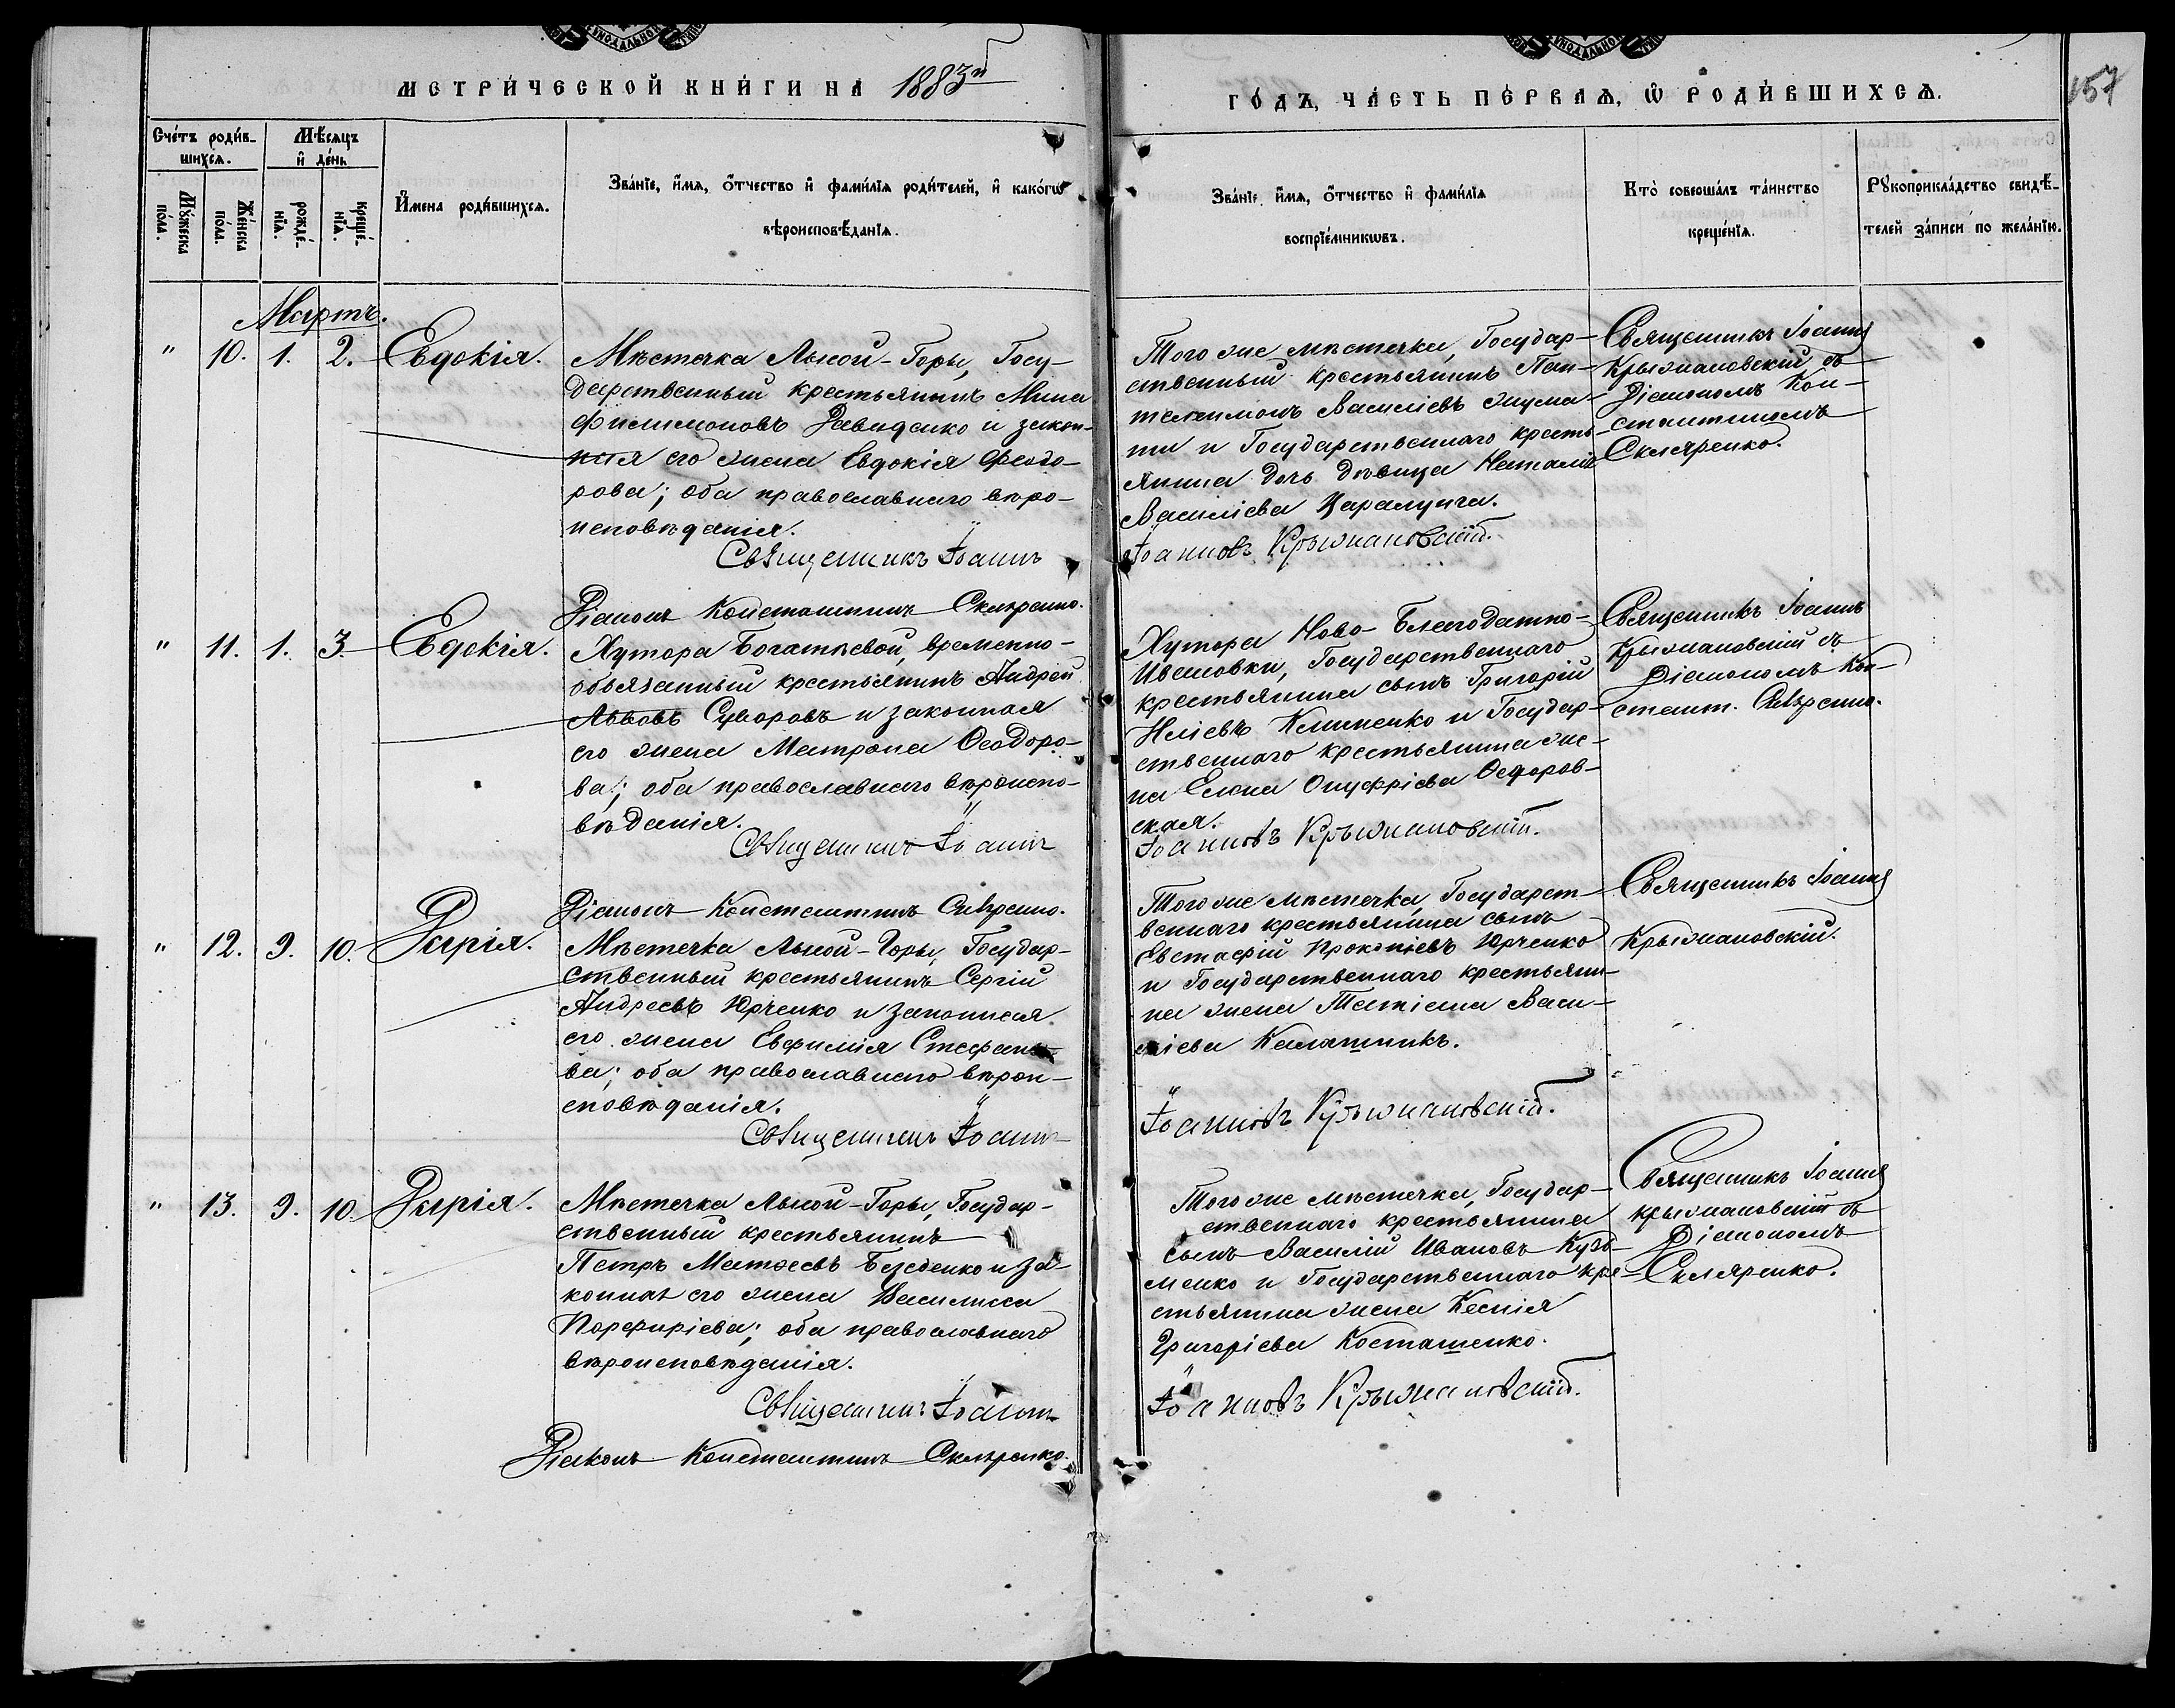 МЕТРИ́ЧЕСКОЙ КНИ́ГИ НА 1883й
ГО́ДЪ, ЧА́СТЬ ПЕ́РВАѦ, Ѡ РОДИ́ВШИХСѦ.
157
Сче́тъ роди́в-
шихсѧ.
Мѣ́сѧцъ
и де́нь
Му́жеска
по́ла.
Же́нска
по́ла.
рожде́-
нїѧ.
креще́-
нїѧ.
И́мена роди́вшихсѧ.
Зва́нїе, и́мѧ, ѻ́тчество и фами́лїѧ роди́телей, и како́гѡ
вѣроисповѣ́данїѧ.
Зва́нїе, и́мѧ, ѻ́тчество и фами́лїѧ
воспрїе́мникѡвъ.
Кто̀ соверша́лъ та́инство
креще́нїѧ.
Рꙋкоприкла́дство свидѣ́-
телей за́писи по жела́нїю.
Мартъ.
" 10. 1. 2. Евдокія.
Мѣстечка Лысой-Горы, Госу-
дарственный крестьянинъ Мина
Филимоновъ Давиденко и закон-
ная его жена Евдокія Феодо-
рова; оба православнаго вѣро-
исповѣданія.
Священникъ Іоаннъ
Діаконъ Константинъ Скляренко.
Того же мѣстечка, Государ-
ственный крестьянинъ Пан-
телеимонъ Василіевъ
и Государственнаго кресть-
янина дочь дѣвица Наталія
Василіева
Іоанновъ Крыжановскій.
Священникъ Іоаннъ
Крыжановскій съ
Діакономъ Кон-
стантиномъ
Скляренко.
" 11. 1. 3. Евдокія.
Хутора Богатѣевой, временно-
обязанный крестьянинъ Андрей
Львовъ Суворовъ и законная
его жена Матрона Ѳеодоро-
ва; оба православнаго вѣроиспо-
вѣданія.
Священникъ Іоаннъ
Діаконъ Константинъ Скляренко.
Хутора Ново-Благодатно-
Ивановки, Государственнаго
крестьянина сынъ Григорій
Иліевъ Клименко и Государ-
ственнаго крестьянина же-
на Елена Онуфріева Ѳедоров-
ская.
Іоанновъ Крыжановскій.
Священникъ Іоаннъ
Крыжановскій съ
Діакономъ Кон-
стант. Скляренко.
" 12. 9. 10. Дарія.
Мѣстечка Лысой-Горы, Государ-
ственный крестьянинъ Сергій
Андреевъ Юрченко и законная
его жена Евфимія Стефано-
ва; оба православнаго вѣрои-
сповѣданія.
Священникъ Іоаннъ
Того же мѣстечка, Государст-
веннаго крестьянина сынъ
Евстафій Прокопіевъ Юрченко
и Государственнаго крестьяни-
на жена Татіана Васи-
ліева Калашникъ.
Іоанновъ Крыжановскій.
Священникъ Іоаннъ
Крыжановскій.
" 13. 9. 10. Дарія.
Мѣстечка Лысой-Горы, Государ-
ственный крестьянинъ
Петръ Матѳеевъ Безденко и за-
конная его жена Василисса
Порфиріева; оба православнаго
вѣроисповѣданія.
Священникъ Іоаннъ
Діаконъ Константинъ Скляренко.
Того же мѣстечка, Государ-
ственнаго крестьянина
сынъ Василій Ивановъ Кузь-
менко и Государственнаго кре-
стьянина жена Ксенія
Григоріева Косташенко.
Іоанновъ Крыжановскій.
Священникъ Іоаннъ
Крыжановскій съ
Діакономъ
Скляренко.